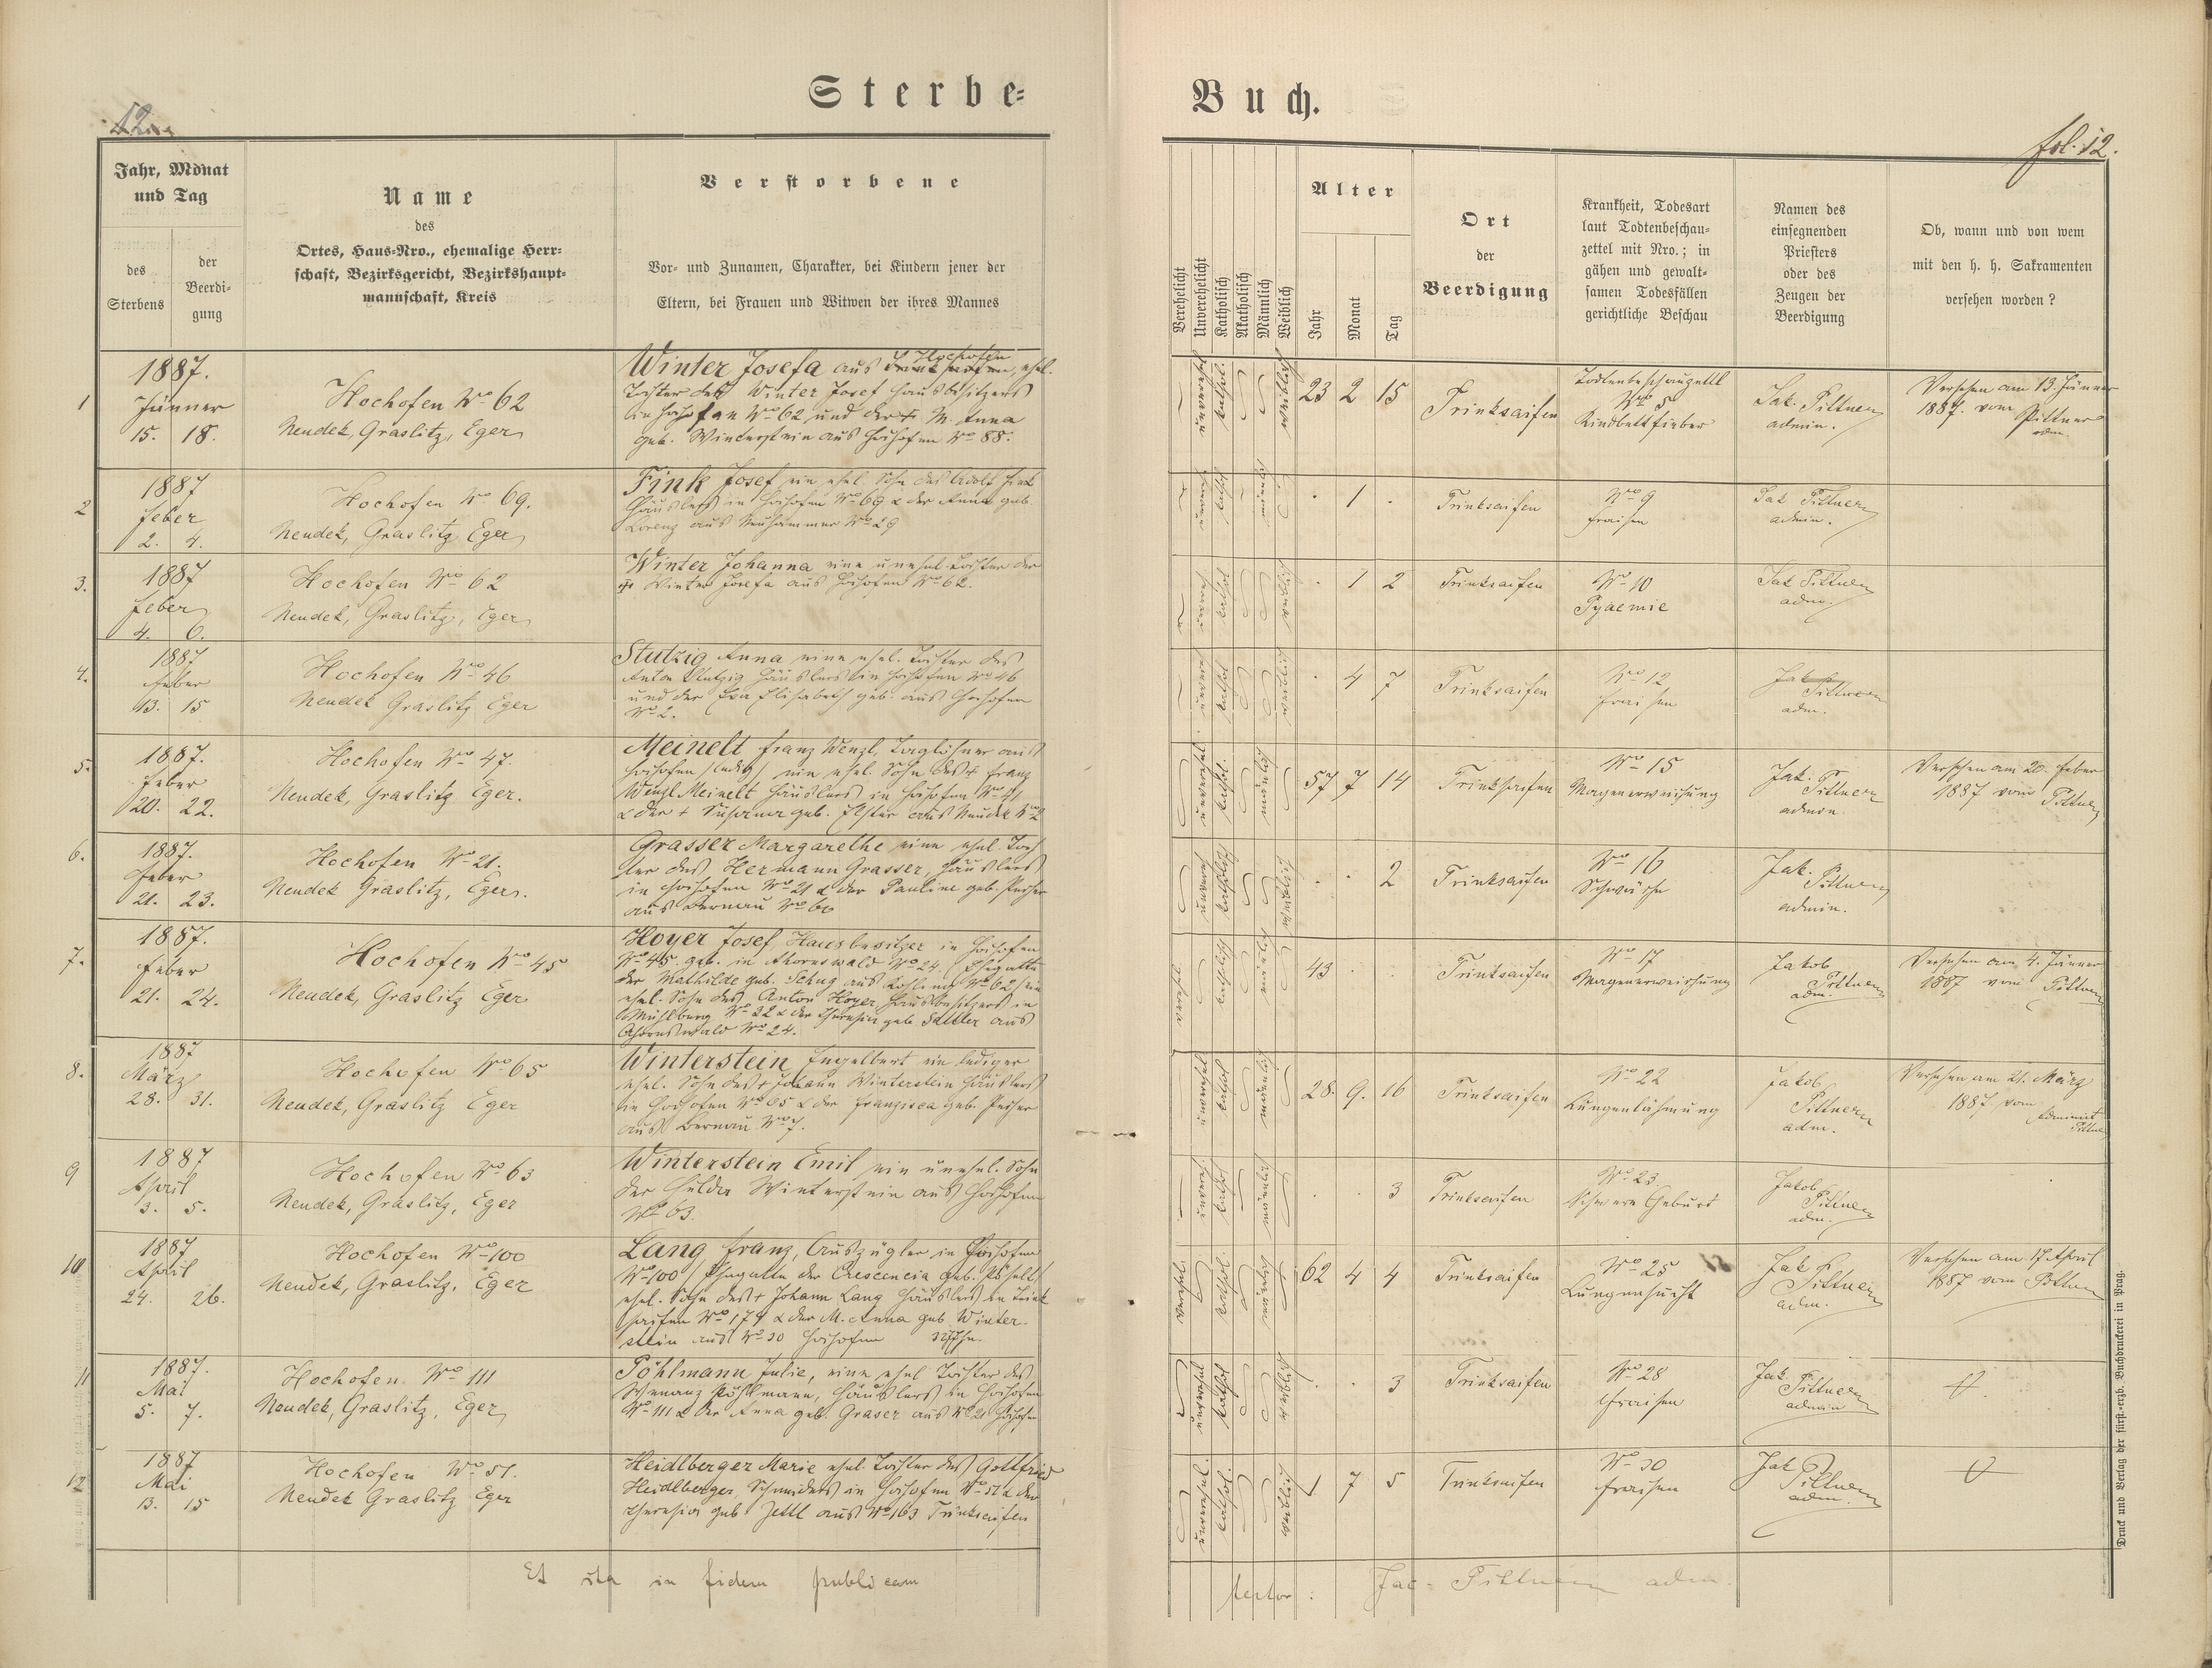 Sterbe-
Buch.
12
fol. 12.
Jahr, Monat
und Tag
des
Sterbens
der
Beerdi-
gung
Name
des
Ortes, Haus-Nro., ehemalige Herr-
schaft, Bezirksgericht, Bezirkshaupt-
mannschaft, Kreis
Verstorbene
Vor- und Zunamen, Charakter, bei Kindern jener der
Eltern, bei Frauen und Witwen der ihres Mannes
Verehelicht
Unverehelicht
Katholisch
Akatholisch
Männlich
Weiblich
Alter
Jahr
Monat
Tag
Ort
der
Beerdigung
Krankheit, Todesart
laut Todtenbeschau-
zettel mit Nro.; in
gähen und gewalt-
samen Todesfällen
gerichtliche Beschau
Namen des
einsegnenden
Priesters
oder des
Zeugen der
Beerdigung
Ob, wann und von wem
mit den h. h. Sakramenten
versehen worden?
1
1887.
Jänner
15. 18.
Hochofen No 62
Neudek, Graslitz, Eger
Winter Josefa aus Hochofen, ehel.
Tochter des Winter Josef Hausbesitzers
in Hochofen No 62 und der + M. Anna
geb. Winterstein aus Hochofen No 88.
23 2 15
Trinksaifen
Todtenbeschauzettl
No 5
Kindbettfieber
Jak. Pittner
admin.
Versehen am 13. Jänner
1887. vom Pittner
adm.
2
1887
Feber
2. 4.
Hochofen No 69.
Neudek, Graslitz Eger
Fink Josef ein ehel. Sohn des Adolf Fink
Häuslers in Hochofen No 69 & der Anna geb.
Lorenz aus Neuhammer No 29
. 1 .
Trinksaifen
No 9
Fraisen
Jak Pittner
admin.
3.
1887
Feber
4. 6.
Hochofen No 62
Neudek, Graslitz, Eger
Winter Johanna eine unehel. Tochter der
+ Winter Josefa aus Hochofen No 62.
. 1 2
Trinksaifen
No 10
Pyaemie
Jak Pittner
adm.
4.
1887
Feber
13. 15
Hochofen No 46
Neudek Graslitz Eger
Stutzig Anna eine ehel. Tochter des
Anton Stutzig Häuslers in Hochofen No 46
und der Eva Elisabeth geb. aus Hochofen
No 2.
. 4 7
Trinksaifen
No 12
Fraisen
Jak Pittner
adm.
5.
1887.
Feber
20. 22.
Hochofen No 47.
Neudek, Graslitz Eger.
Meinelt Franz Wenzl, Taglöhner aus
Hochofen /ledig/ ein ehel. Sohn des + Franz
Wenzl Meinelt Häuslers in Hochofen
& der + Susanna geb. Elster aus Neudek No 2
57 7 14
Trinksaifen
No 15
Magenerweichung
Jak. Pittner
admin.
Versehen am 20. Feber
1887 vom Pittner
6.
1887.
Feber
21. 23.
Hochofen No 21.
Neudek Graslitz, Eger.
Grasser Margarethe eine ehel. Toch
ter des Hermann Grasser, Häuslers
in Hochofen No 21 & der Pauline geb. Pecher
aus Bernau No 60
. . 2
Trinksaifen
No 16
Schwäche
Jak. Pittner
admin.
7.
1887.
Feber
21. 24.
Hochofen No 45
Neudek, Graslitz Eger
Hoyer Josef, Hausbesitzer in Hochofen
No 45. geb. in Ahornswald No 24. Ehegatte
der Mathilde geb. Schug aus Kösling No 62/ ein
ehel. Sohn des Anton Hoyer, Hausbesitzers in
Mühlberg No 22 & der Theresia geb Sattler aus
Ahornswald No 24.
43 . .
Trinksaifen
No 17
Magenerweichung
Jakob
Pittner
adm.
Versehen am 4. Jänner
1887 vom Pittner
8.
1887
März
28. 31.
Hochofen No 65
Neudek, Graslitz Eger
Winterstein Engelbert ein lediger
ehel. Sohn des + Johann Winterstein Häuslers
in Hochofen No 65 & der Franzisca geb. Pecher
aus Bernau No 7.
28. 9. 16
Trinksaifen
No 22
Lungenlähmung
Jakob
Pittner
adm.
Versehen am 21. März
1887 vom Administ
Pittner
9
1887
April
3. 5.
Hochofen No 63
Neudek, Graslitz, Eger
Winterstein Emil ein unehel. Sohn
der Hulda Winterstein aus Hochofen
No 63.
. . 3
Trinksaifen
No 23
Schwere Geburt
Jakob
Pittner
adm.
10
1887
April
24. 26.
Hochofen No 100
Neudek, Graslitz, Eger
Lang Franz, Auszügler in Hochofen
No 100 / Ehegatte der Crescencia geb. Pöhelt/
ehel. Sohn des + Johann Lang Häuslers in Trink
saifen No 179 & der M. Anna geb Winter-
stein aus No 30 Hochofen
62 4 4
Trinksaifen
No 25
Lungensucht
Jakob
Pittner
adm.
Versehen am 17. April
1887 vom Pittner
11
1887.
Mai
5. 7.
Hochofen. No 111
Neudek, Graslitz, Eger
Pöhlmann Julie, eine ehel Tochter des
Pöhlmann, Häuslers in Hochofen
No 111 & der Anna geb. Graser aus No 21 Hochofen
. . 3
Trinksaifen
No 28
Fraisen
Jak.
Pittner
admin
12
1887
Mai
13. 15
Hochofen No 51.
Neudek Graslitz Eger
Heidlberger Marie ehel. Tochter des Gottfried
Heidlberger, Schneiders in Hochofen No 51 & der
Theresia geb. Zettl aus No 163 Trinksaifen
1 7 5
Trinksaifen
No 30
Fraisen
Jak
Pittner
adm.
Et ita in fidem publicam
testor: Jac. Pittner adm.
Druck und Verlag der fürst.-erzb. Buchdruckerei in Prag.